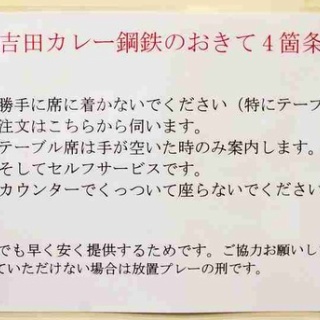 吉田カレー鋼鉄のおきて４箇条
勝手に席に着かないでください（特にテーブ
注文はこちらから伺います。
テーブル席は手が空いた時のみ案内します。
そしてセルフサービスです。
カウンターでくっついて座らないでください
でも早く安く提供するためです。ご協力お願いし
ていただけない場合は放置プレーの刑です。